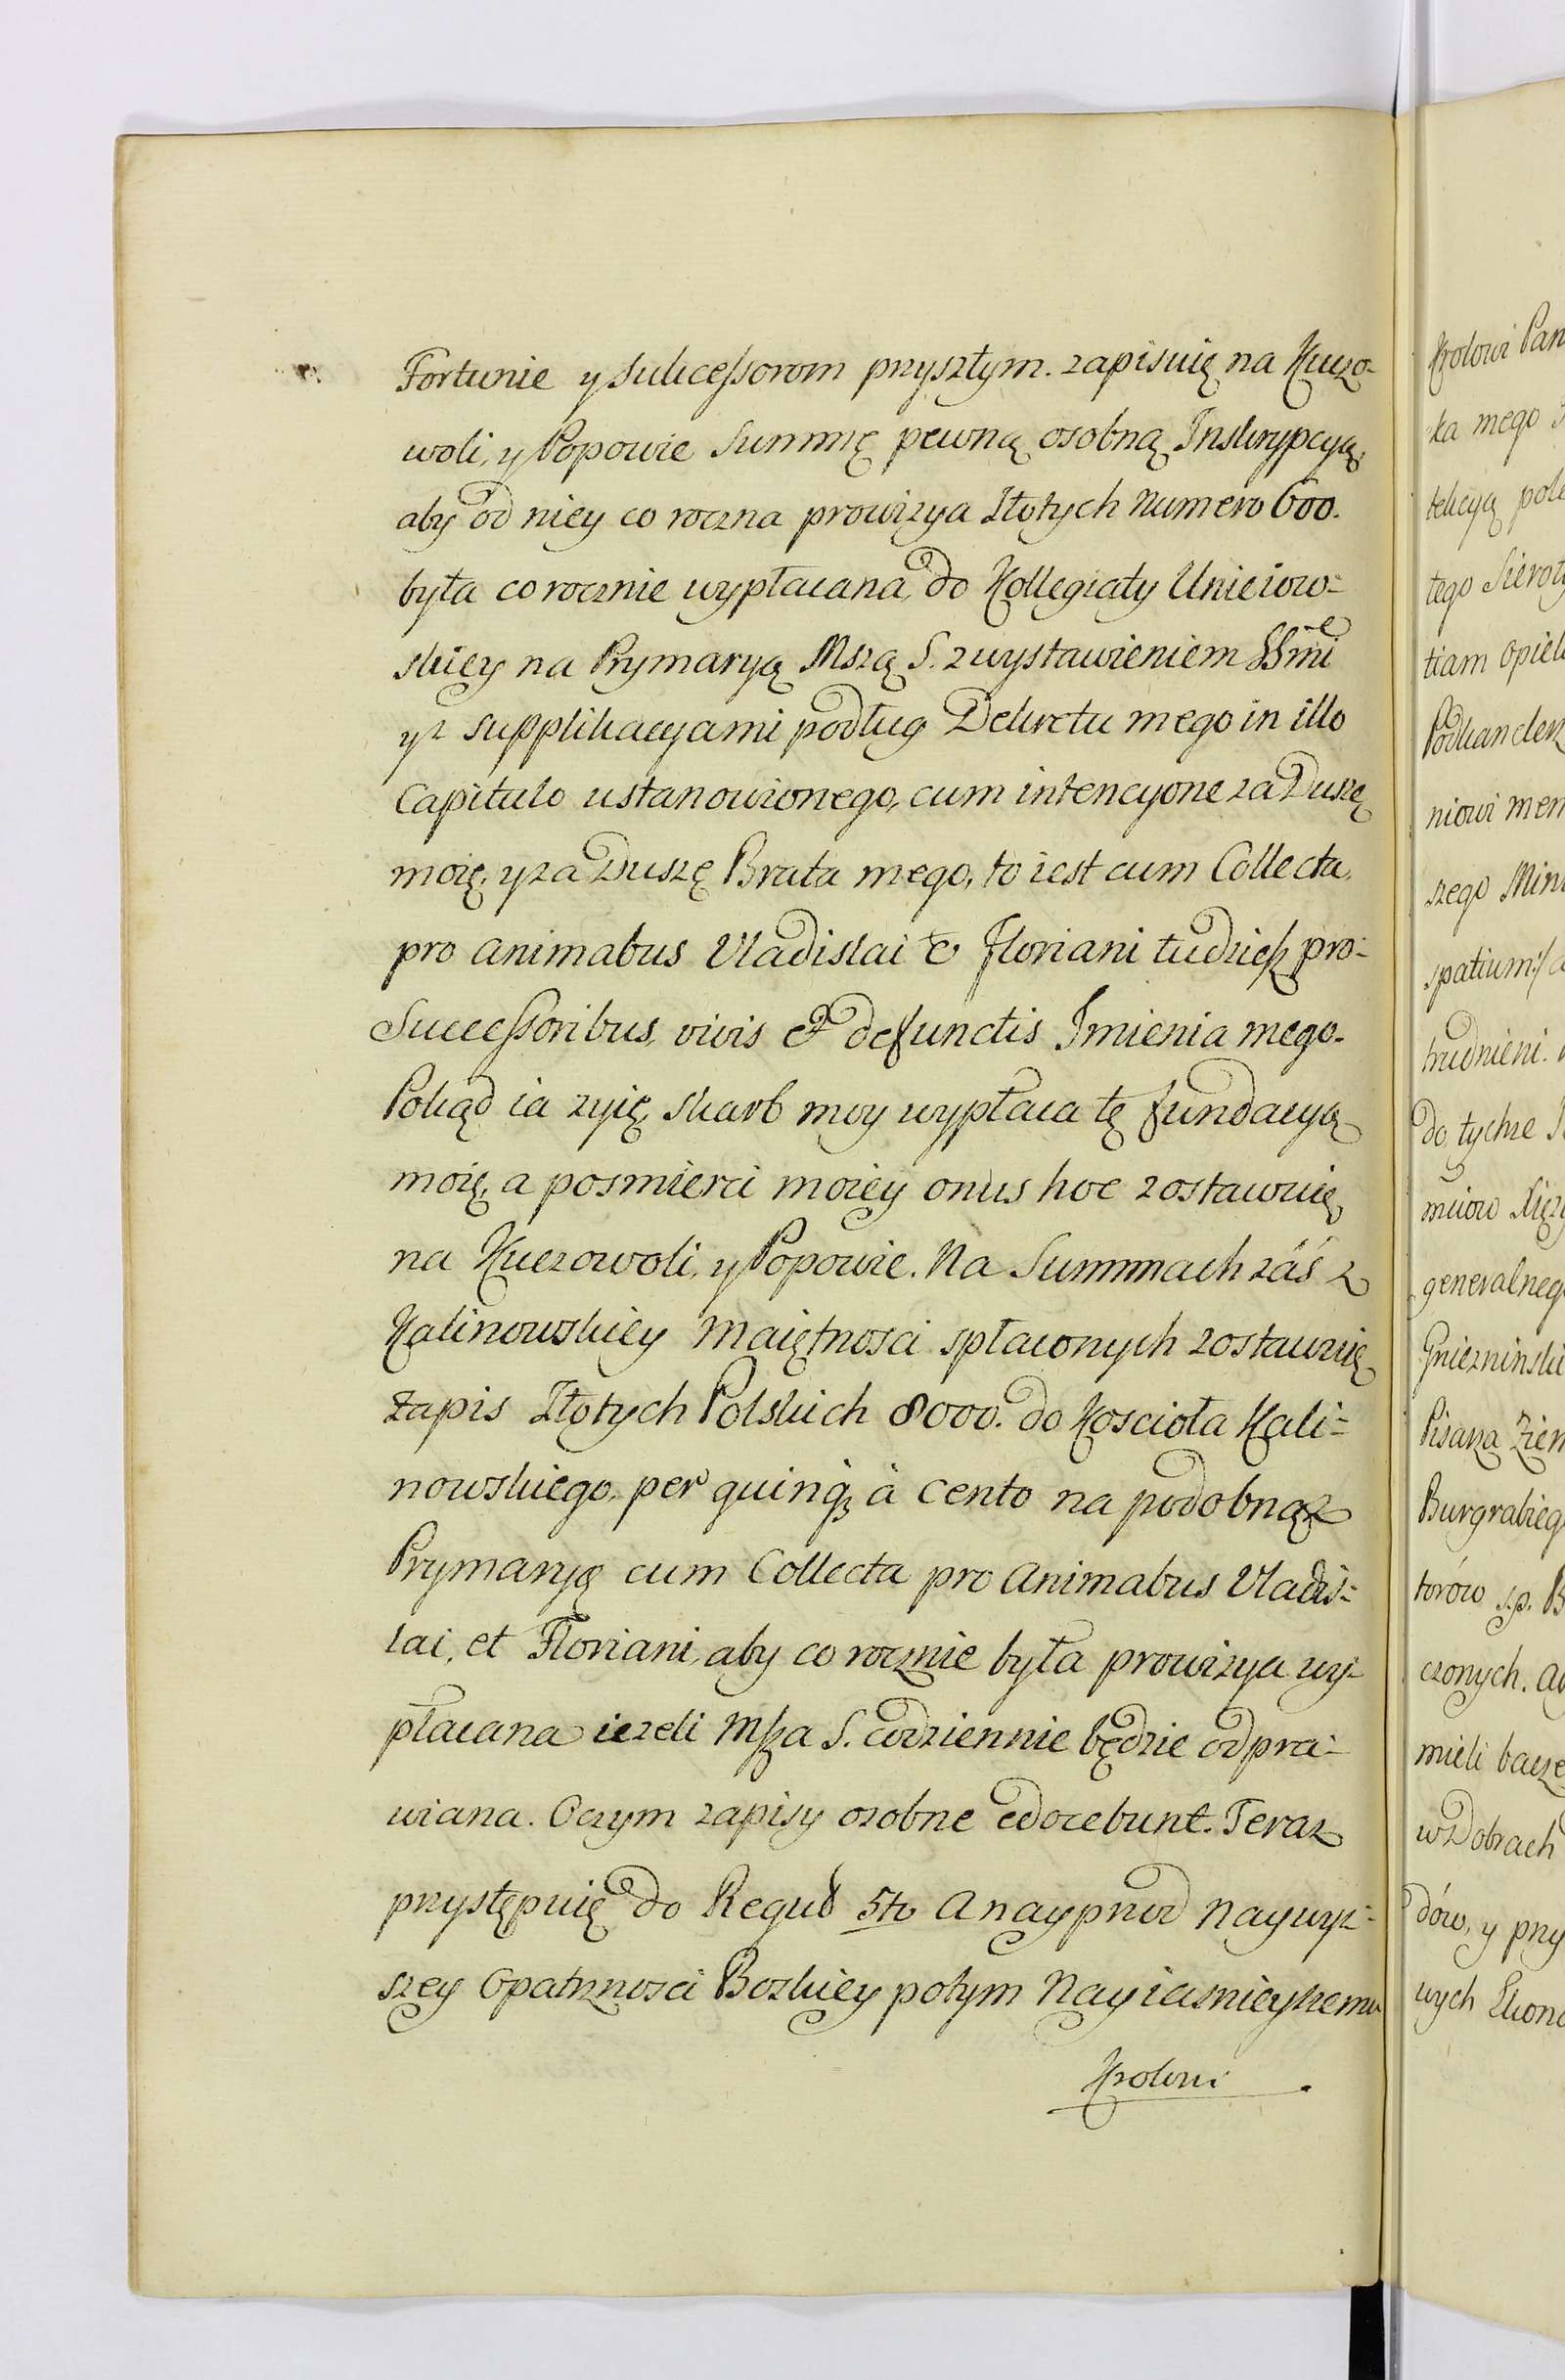 Fortunie y Sukcessorom przyszłym. zapisuię na Kuczo-
woli, y Popowie Summę pewną osobną Inskrypcyą,
aby od niey co roczna prowizya Złotych Numero 600.
była co rocznie wypłacana, do Kollegiaty Unieiow-
skiey na Prymaryą Mszą S. z wystawieniem SSmi
y z Supplikacyami podług Dekretu mego in illo
Capitulo ustanowionego, cum intencyone za Duszę
moię, y za Duszę Brata mego, to iest cum Collecta,
pro animabus Vladislai & Floriani tudzież pro-
Successoribus, vivis et defunctis Imienia mego.
Pokąd ia zyię, Skarb moy wypłaca tę fundacyą
moię, a posmierci moiey onus hoc zostawuię,
na Kuczowoli, y Popowie. Na Summach záś z
Kalinowskiey Maiętnosci spłaconych zostawuię
zapis Złotych Polskich 8000. do Koscioła Kali-
nowskiego, per quinq; à cento na podobnąż
Prymaryą cum Collecta pro Animabus Vladis-
lai, et Floriani, aby co rocznie była prowizya wy-
płacana iezeli Msza S. codziennie będzie odpra-
wiana. Oczym zapisy osobne edocebunt. Teraz
przystępuię do Reguł 5to a nayprzod Naywyz-
szey Opatrznosci Boskiey potym Nayiasnieyszemu
Krolowi
Krolowi Pan
ka mego
tekcyą pole
tego Sierot
tiam opiek
Podkanclerz
niowi mem
szego Mini
spatium
trudnieni.
do tychze
muiow Xięz
generalneg
Gniezninski
Pisarza Ziem
Burgrabieg
torów s.p. B
czonych. a
mieli bacze
w Dobrach
dów, y przy
wych Ekono